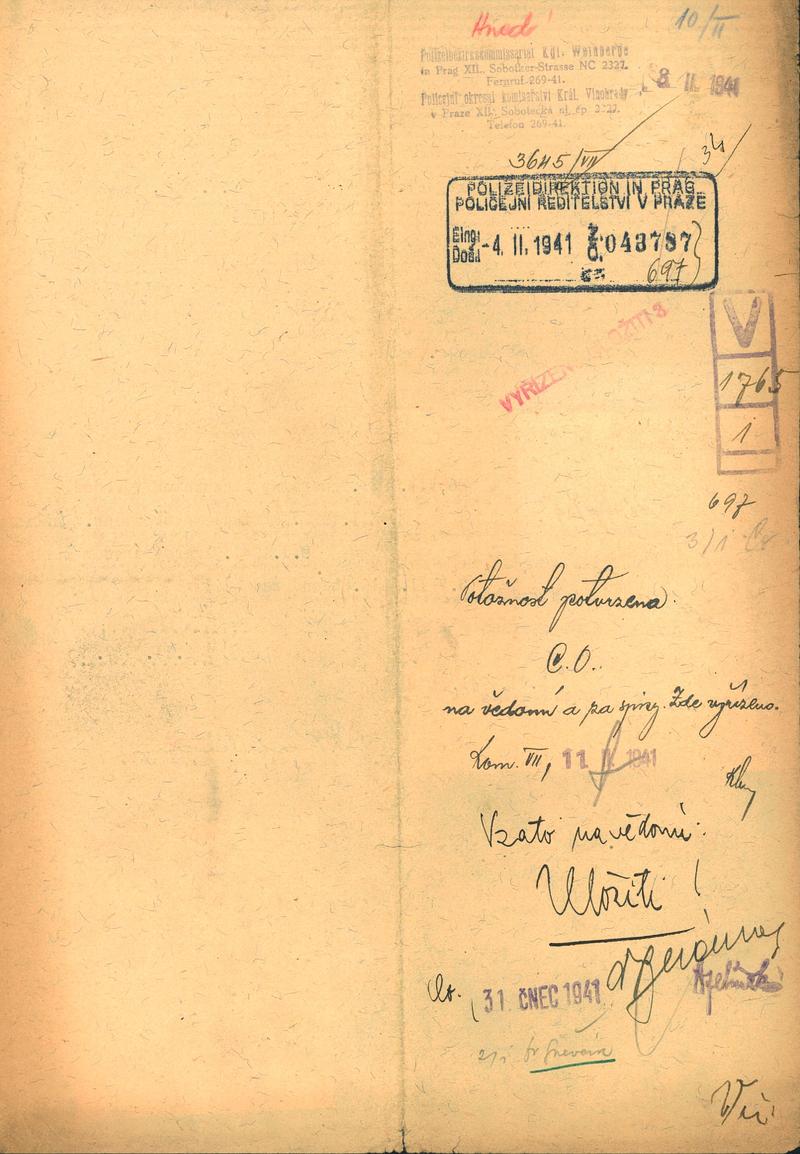 Hned!
10/II
Polizeibezirkskommissariat Kgl. Weinberge
in Prag XII., Sobotker-Strasse NC 2327.
Fernruf 269-41.
Policejní okresní komisařství Král. Vinohrady
v Praze XII., Sobotecká ul. čp. 2327.
Telefon 269-41.
8 II. 1941
34
3645/VII
POLIZEIDIREKTION IN PRAG
POLICEJNÍ ŘEDITELSTVÍ V PRAZE
Eing:
Došl:
-4. II. 1941
Z.
Č.
043787
697
VYŘÍZENO
V
1765
1
697
3/1
Totožnost potvrzena.
C.O.
na vědomí a za spisy. Zde vyřízeno.
Kom. VII, 11 1941
Vzato na vědomí.
Uložiti!
31. ČNEC 1941